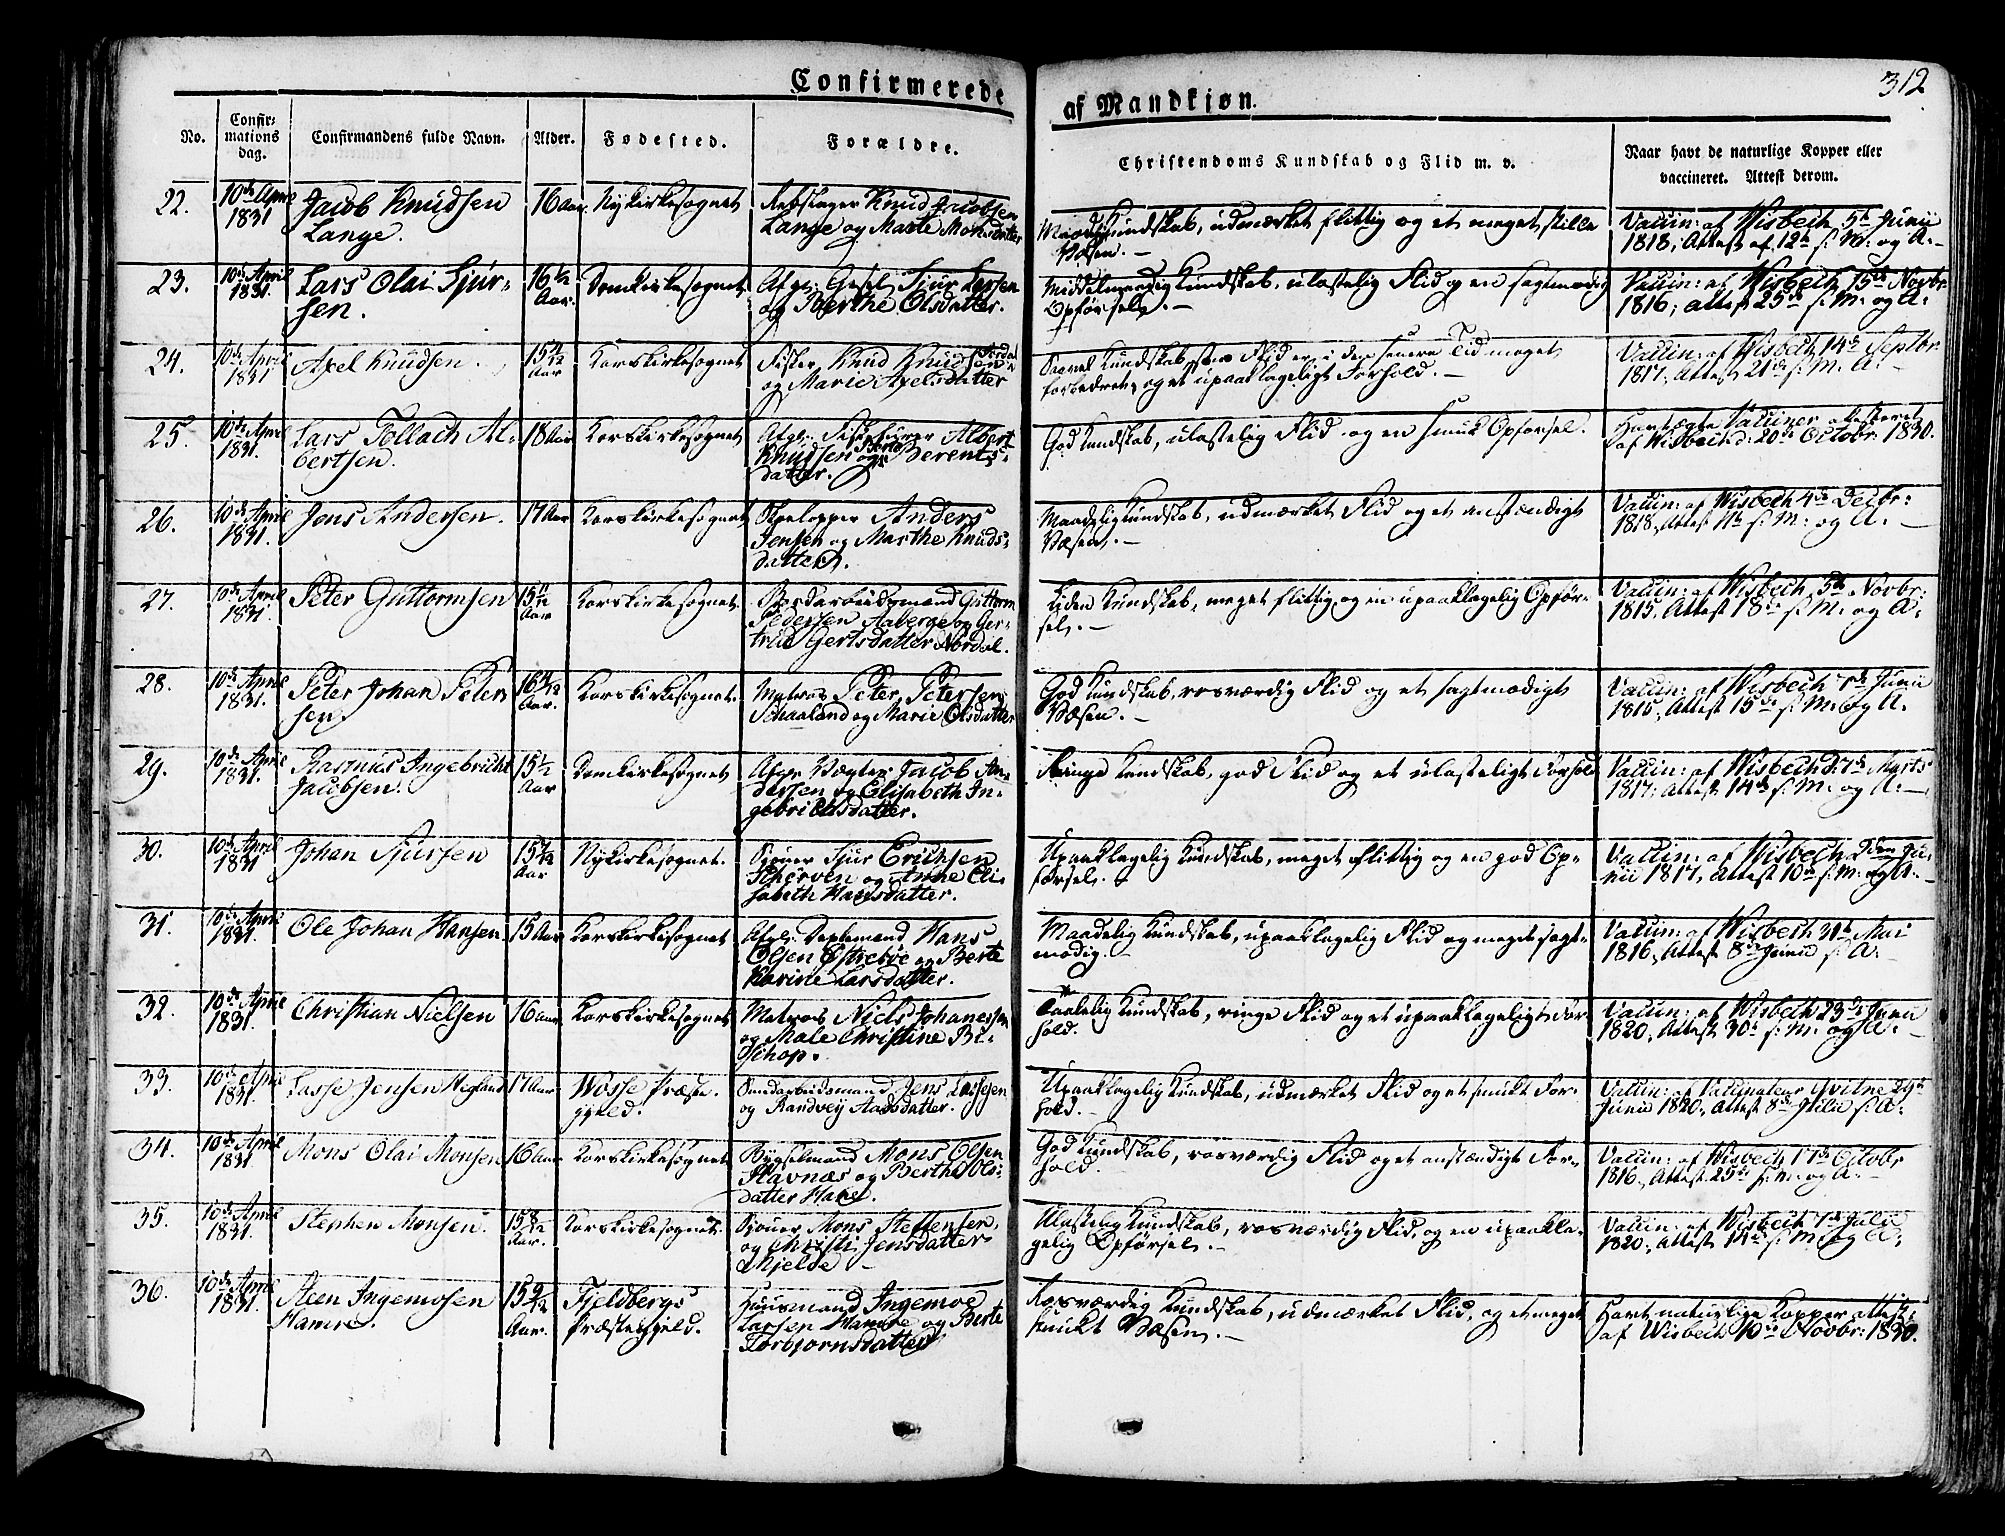 Confirmerede
af Mandkjøn.
312
No.
Confir-
mations
dag.
Confirmandens fulde Navn.
Alder.
Fødested.
Forældre.
Christendoms Kundskab og Flid m. v.
Naar havt de naturlige Kopper eller
vaccineret. Attest derom.
22. 10de April 1831 Jacob Knudsen Lange. 16 Aar. Nykirkesognet Rebslager Knud Jacobsen
Lange og Marte Monsdatter
Maadelig Kundskab, udmærket flittig og et meget stille
Væsen. –
Vaccin: af Wisbech 5te Junii
1818, Attest af 12te s: M: og A: –
23. 10de April 1831. Lars Olai Sjur-
sen. 16 1/2 Aar. Domkirkesognet Afg: Gesel Sjur Larsen
og Berthe Olsdatter.
Middelmaadig Kundskab, ulastelig Flid og en sagtmodig
Opførsel. –
Vaccin: af Wisbech 15de Novbr.
1816, Attest 25de s: M: og A: –
24. 10de April 1831 Axel Knudsen. Aar Korskirkesognet Fisker Knud Knudsen
og Marie Axelsdatter
Kundskab, Flid er i den senere Tid meget
forbedret, og et upaaklageligt Forhold. –
Vaccin: af Wisbech 14de Septbr.
1817, Attest 21de s: M: A: –
25. 10de April 1831. Lars Tollach Al-
bertsen. 18 Aar Korskirkesognet Afg: Albert
Knudsen og Berents-
datter.
God Kundskab, ulastelig Flid og en smuk Opførsel.
Vacciner attesteret
af Wisbech d: 20de Octobr: 1830.
26. 10de April 1831. Jens Andersen. 17 Aar Korskirkesognet Anders
Jensen og Marthe Knuds-
datter.
Maadelig Kundskab, udmærket Flid og et anstændigt
Væsen. –
Vaccin: af Wisbech 4de Decbr:
1818, Attest 11te s: M: og A: –
27. 10de April 1831. Peter Guttormsen 15 11/12 Aar Korskirkesognet Guttorm
Pedersen Aaberge og Ger-
trud Gertsdatter Nordal.
Liden Kundskab, meget flittig og en upaaklagelig Opfør-
sel. –
Vaccin: af Wisbech 5te Novbr:
1815, Attest 18de s: M: og A:
28. 10de April 1831. Peter Johan Peter-
sen. Aar. Korskirkesognet. Matros Peter Petersen
Schaaland og Marie Olsdatter
God Kundskab, rosværdig Flid og et sagtmodigt
Væsen. –
Vaccin: af Wisbech 7de Junii
1815, Attest 15de s: M: og A:
29. 10de April 1831. Rasmus Ingebricht
Jacobsen. 15 1/2 Aar Domkirkesognet Afg: Vægter Jacob An-
dersen og Elisabeth In-
gebrichtsdatter.
Ringe Kundskab, god Flid og et ulasteligt Forhold
Vaccin: af Wisbech d: 7de Marts
1817, Attest 14de s: M: og A: –
30. 10de April 1831 Johan Sjursen 15 Aar Nykirkesognet. Sjouer Sjur Erichsen
Scherven og Anne Eli-
sabeth Hansdatter.
Upaaklagelig Kundskab, meget flittig og en god Op-
førsel. –
Vaccin: af Wisbech 2den Ju-
nii 1817, Attest 10de s: M: og A: –
31. 10de April 1831. Ole Johan Hansen. 15 Aar Korskirkesognet Afg: Hans
Olsen Østreboe og Berte
Karine Larsdatter.
Maadelig Kundskab, upaaklagelig Flid og meget sagt-
modig. –
Vaccin: af Wisbech 31te Mai
1816, Attest 8de Junii s: A: –
32. 10de April 1831. Christian Nielsen 16 Aar Korskirkesognet Matros Niels Johanessen
og Male Christine Bi-
schop.
Taalelig Kundskab, ringe Flid og et upaaklageligt For-
hold. –
Vaccin: af Wisbech 23de Junii
1820, Attest 30te s: M: og A: –
33. 10de April 1831. Lasse Jensen Hegland 17 Aar Wosse Præste-
gjeld. Jens Lassesen
og Randvey Aadsdatter.
Upaaklagelig Kundskab, udmærket Flid og et smukt For-
hold. –
Vaccin: af Vaccinateur Qvitne 29de
Junii 1820, Attest 8de Julii s: A:
34. 10de April 1831. Mons Olai Monsen 16 Aar Korskirkesognet Bygselmand Mons Olsen
Havnæs og Berthe Ols-
datter
God Kundskab, rosværdig Flid og et anstændigt For-
hold.
Vaccin: af Wisbech 17de Octobr
1816, Attest 25de s: M: og A: –
35. 10de April 1831. Stephen Monsen. 15 8/12 Aar. Korskirkesognet. Sjouer Mons Steffensen
og Christi Jensdatter
Kjelde –
Ulastelig Kundskab, rosværdig Flid, og en upaakla-
gelig Opførsel. –
Vaccin: af Wisbech 7de Julii
1820, Attest 14de s: M: og A:
36. 10de April 1831. Steen Ingemosen
Hamre. 15 9/12 Aar. Fjeldbergs
Præstegjeld. Huusmand Ingemoe
Larsen Hamre og Berte
Torbjornsdatter
Rosværdig Kundskab, udmærket Flid, og et meget
smukt Væsen. –
Havt naturlige Kopper attest:
af Wisbech 10de Novbr: 1830.